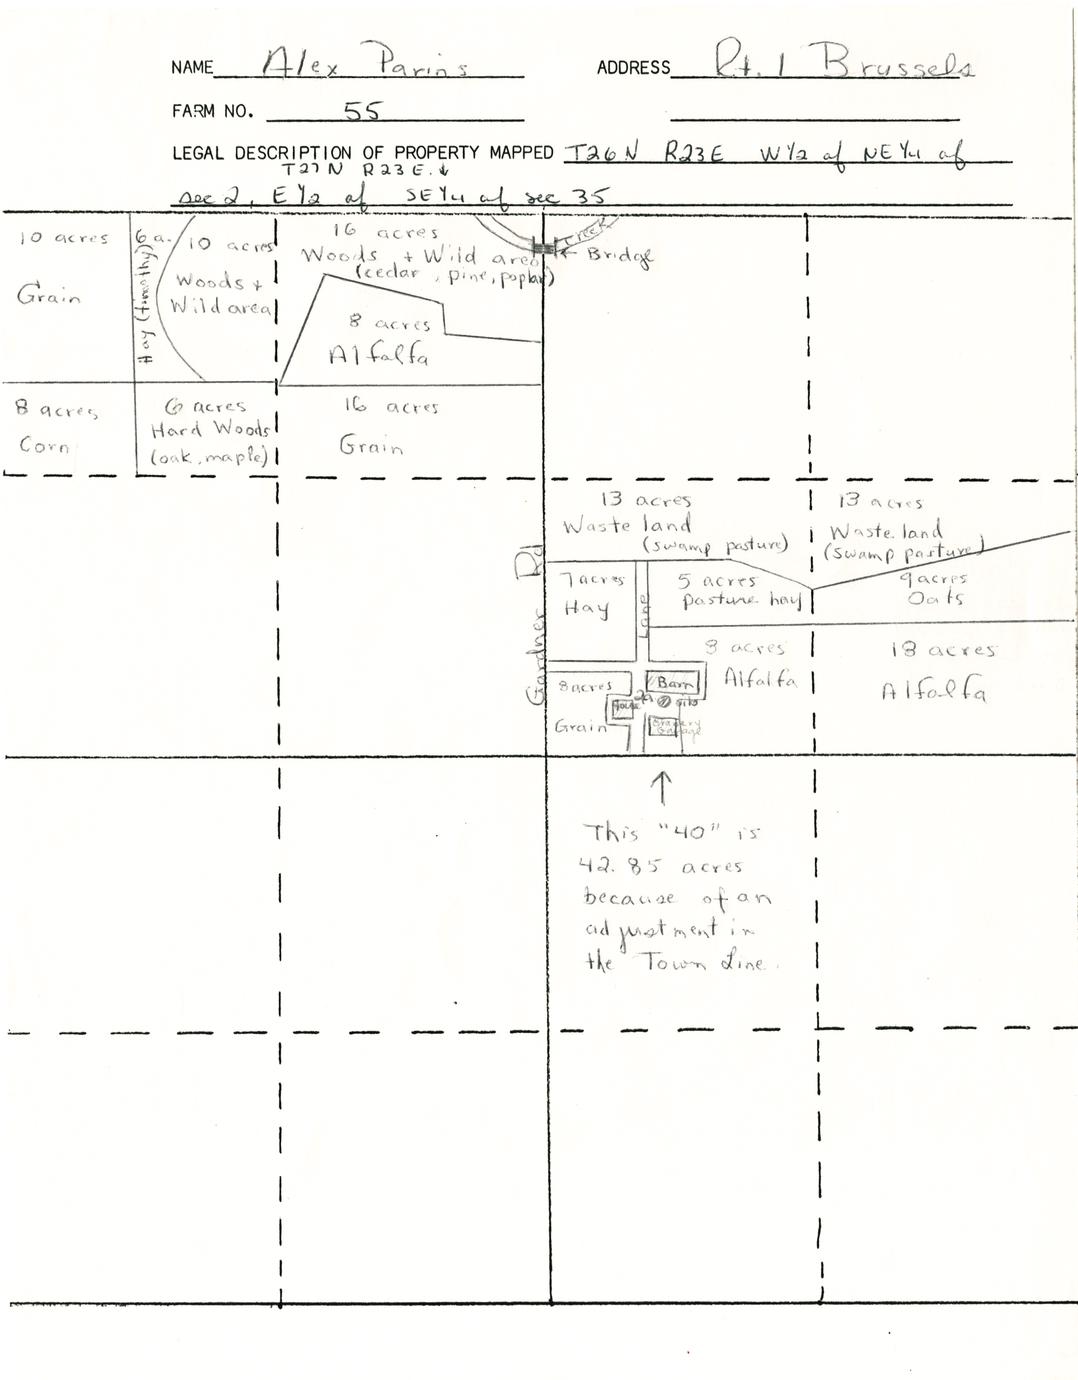 NAME Alex Parins ADDRESS Rt. 1 Brussels
FARM NO. 55
LEGAL DESCRIPTION OF PROPERTY MAPPED T26N R23E W½ of NE¼ of
T27N R23E.↓
sec 2, E½ of SE¼ of sec 35
10 acres
Grain
6 a.
Hay (timothy)
10 acres
Woods +
Wild area
16 acres
Woods + Wild area
(cedar, pine, poplar)
Creek
← Bridge
8 acres
Alfalfa
8 acres
Corn
6 acres
Hard Woods
(oak, maple)
16 acres
Grain
Gardner Rd
13 acres
Waste land
(swamp pasture)
13 acres
Waste land
(swamp pasture)
7 acres
Hay
Lane
5 acres
Pasture hay
9 acres
Oats
8 acres
Alfalfa
18 acres
Alfalfa
8 acres
Grain
Barn
2a
silo
House
Granery
Garage
↑
This "40" is
42.85 acres
because of an
adjustment in
the Town Line.